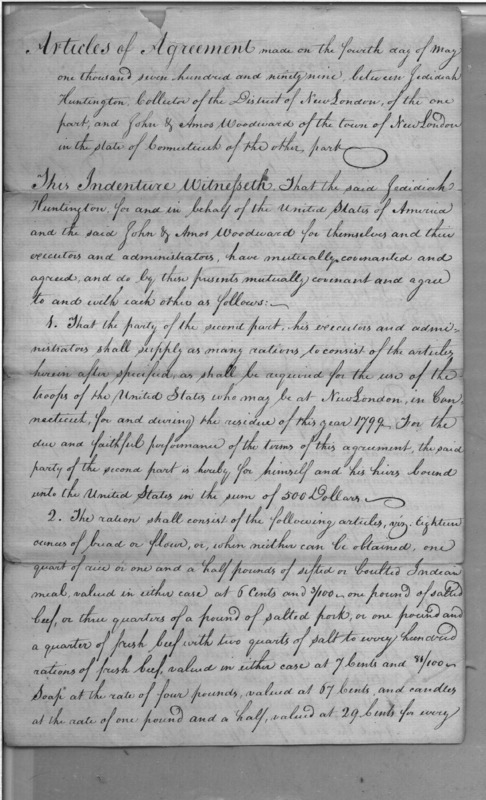 Articles of Agreement made on the fourth day of May
one thousand seven hundred and ninety nine, between Jedidiah
Huntington, Collector of the District of New London, of the one
part, and John & Amos Woodward of the town of New London
in the state of Connecticut of the other part
This Indenture Witnesseth, That the said Jedidiah
Huntington, for and in behalf of the United States of America
and the said John & Amos Woodward for themselves and their
executors and administrators, have mutually covenanted and
agreed, and do by these presents mutually covenant and agree
to and with each other as follows:
1. That the party of the second part, his executors and admi-
nistrators shall supply as many rations, to consist of the articles
herein after specified, as shall be required for the use of the
troops of the United States who may be at New London, in Con-
necticut, for and during the residue of this year 1799. For the
due and faithful performance of the terms of this agreement, the said
party of the second part is hereby for himself and his heirs bound
unto the United States in the sum of 500 Dollars.
2. The ration shall consist of the following articles, viz. Eighteen
ounces of bread or flour, or, when neither can be obtained, one
quart of rice or one and a half pounds of sifted or boulted Indian
meal, valued in either case at 6 Cents and /100, one pound of salted
beef, or three quarters of a pound of salted pork, or one pound and
a quarter of fresh beef with two quarts of salt to every hundred
rations of fresh beef, valued in either case at 7 Cents and /100
Soap at the rate of four pounds, valued at 67 Cents, and candles
at the rate of one pound and a half, valued at 29 Cents for every